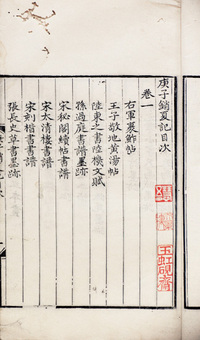 庚子銷夏記目次
卷一
右軍裹鮓帖
王子敬地黃湯帖
陸東之書陸機文賦
孫過庭書譜墨跡
宋秘閣續帖書譜
宋太清樓書譜
宋刻楷書書譜
張長史草書墨跡